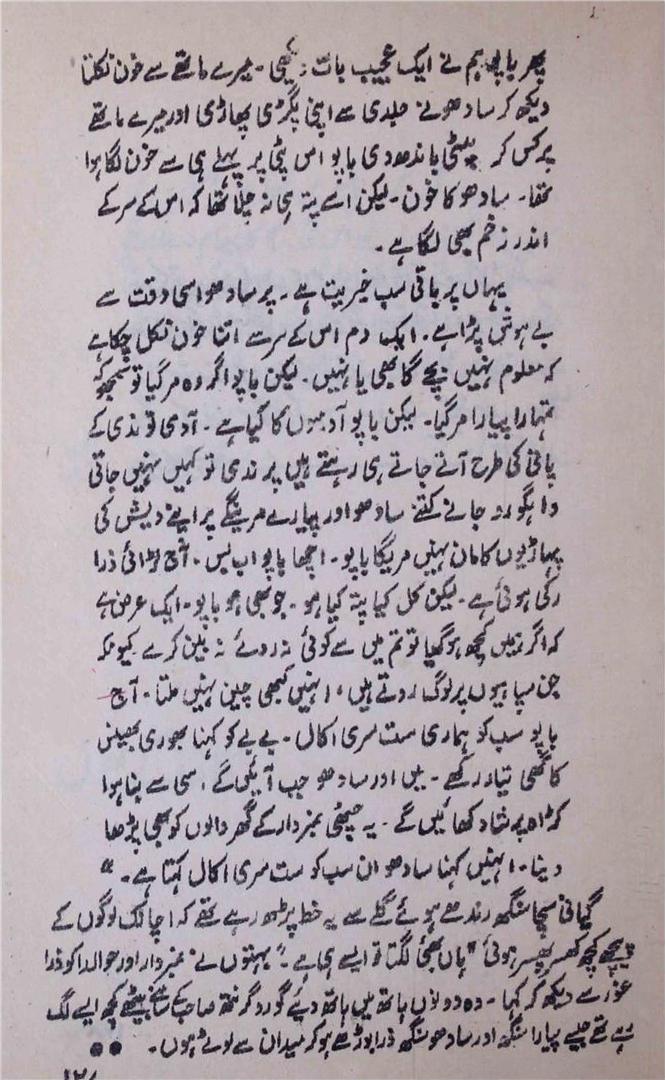 پھر باپو ہم نے ایک عجیب بات دیکھی۔ میرے ماتھے سے خون نکلتا
دیکھ کر سادھو نے جلدی سے اپنی پگڑی پھاڑی اور میرے ماتھے
پر کس کر پٹی باندھ دی باپو اس پٹی پر پہلے ہی سے خون لگا ہوا
تھا۔ سادھو کا خون۔ لیکن اسے پتہ ہی نہ چلا تھا کہ اس کے سر کے
اندر زخم بھی لگا ہے۔
یہاں پر باقی سب خیریت ہے۔ پر سادھو اسی وقت سے
بے ہوش پڑا ہے۔ ایک دم اس کے سر سے اتنا خون نکل چکا ہے
کہ معلوم نہیں بچے گا بھی یا نہیں۔ لیکن باپو اگر وہ مر گیا تو سمجھو کہ
تمہارا پیارا مر گیا۔ لیکن باپو آدمیوں کا کیا ہے۔ آدمی تو ندی کے
پانی کی طرح آتے جاتے ہی رہتے ہیں پر ندی تو کہیں نہیں جاتی
واہگورو جانے کتنے سادھو اور پیارے مرینگے پر اپنے دیش کی
پہاڑیوں کا مان نہیں مریگا باپو۔ اچھا باپو اب بس۔ آج لڑائی ذرا
رکی ہوئی ہے۔ لیکن کل کیا پتہ کیا ہو۔ جو بھی ہو باپو۔ ایک عرض ہے
کہ اگر ہمیں کچھ ہو گیا تو تم میں سے کوئی نہ روئے نہ بین کرے کیونکہ
جن سپاہیوں پر لوگ روتے ہیں، انہیں کبھی چین نہیں ملتا۔ آج
باپو سب کو ہماری ست سری اکال۔ بے بے کو کہنا بھوری بھینس
کا گھی تیار رکھے۔ میں اور سادھو جب آئیں گے، اسی سے بنا ہوا
کڑاہ پرشاد کھائیں گے۔ یہ چٹھی نمبردار کے گھر والوں کو بھی پڑھا
دینا۔ انہیں کہنا سادھو ان سب کو ست سری اکال کہتا ہے۔"
گیانی سچا سنگھ رندھے ہوئے گلے سے یہ خط پڑھ رہے تھے کہ اچانک لوگوں کے
پیچھے کچھ کھسر پھسر ہوئی "ہاں بھئی لگتا تو ایسے ہی ہے۔" بہتوں نے نمبردار اور حوالدار کو ذرا
غور سے دیکھ کر کہا۔ وہ دونوں ہاتھ میں ہاتھ دیئے گورو گرنتھ صاحب کے سامنے بیٹھے کچھ ایسے لگ
رہے تھے جیسے پیارا سنگھ اور سادھو سنگھ ذرا بوڑھے ہو کر میدان سے لوٹے ہوں۔ ●●